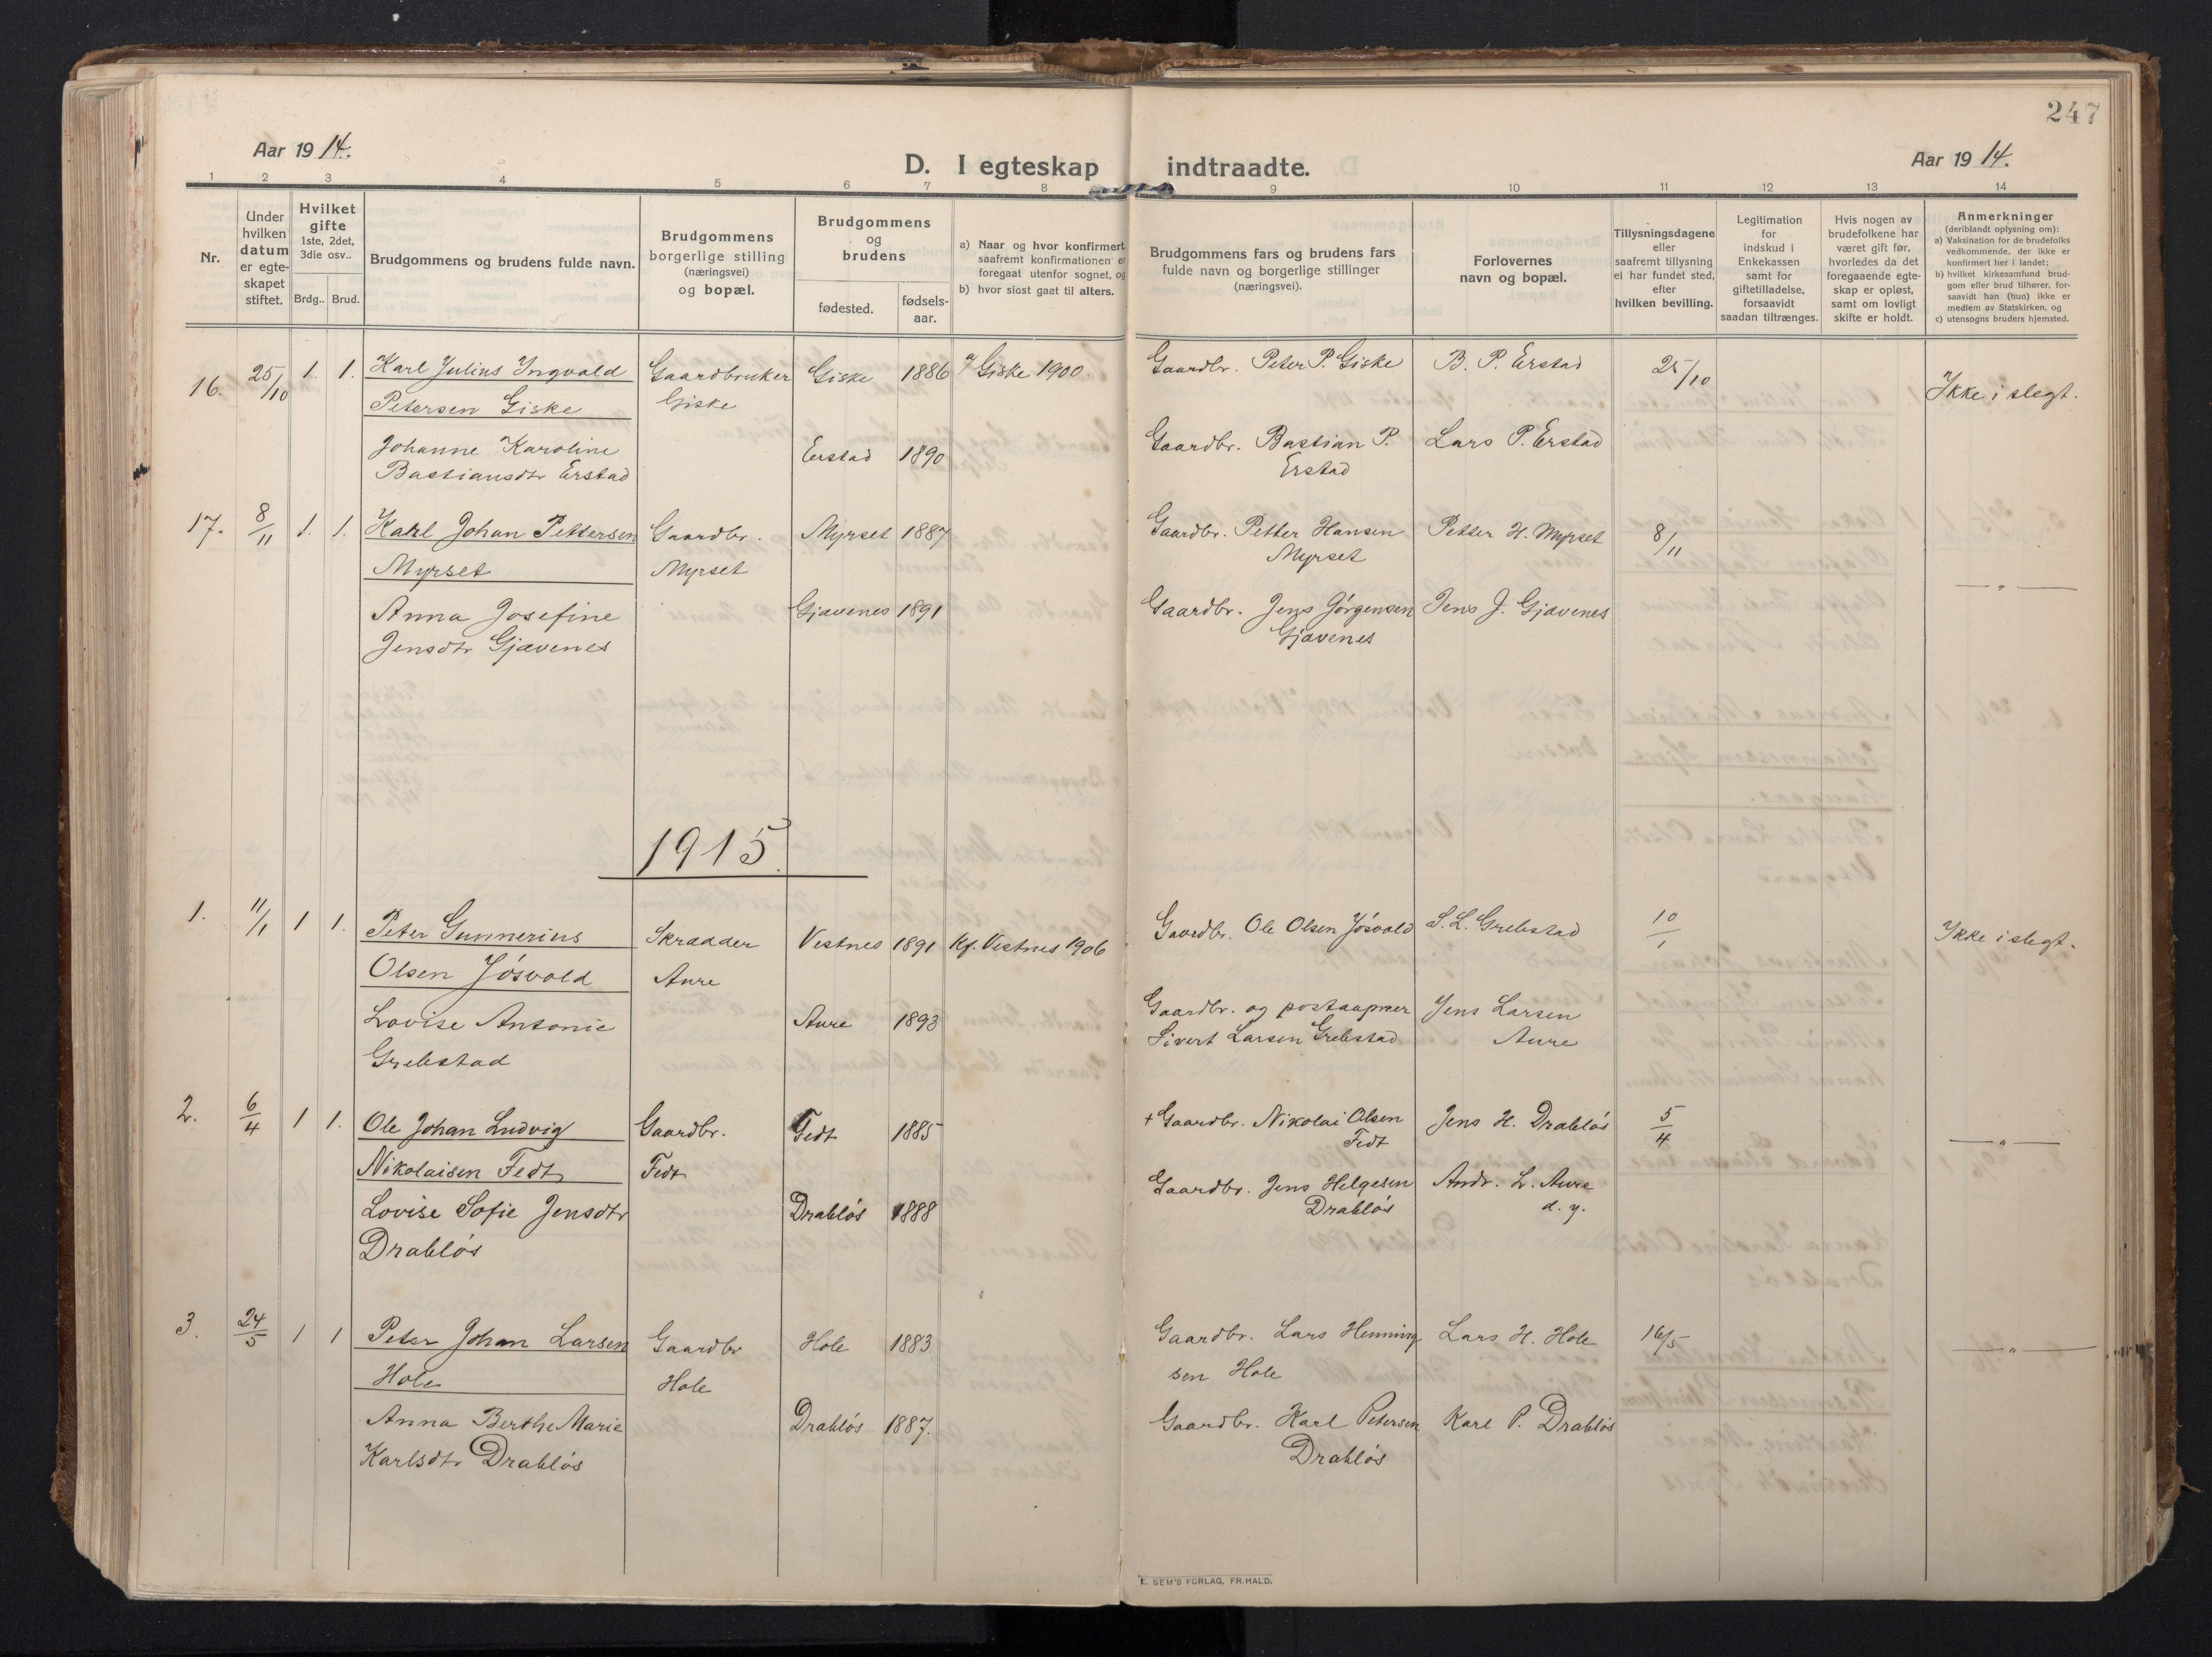 247
Aar 1914.
D. I egteskap indtraadte.
Aar 1914.
1 2 3 4 5 6 7 8 9 10 11 12 13 14
Nr.
Under hvilken datum er egte- skapet stiftet.
Hvilket gifte 1ste, 2det, 3die osv..
Brdg.. Brud.
Brudgommens og brudens fulde navn.
Brudgommens borgerlige stilling (næringsvei) og bopæl.
Brudgommens og brudens
fødested.
fødsels- aar.
a) Naar og hvor konfirmert
saafremt konfirmationen e
foregaat utenfor sognet, og
b) hvor sidst gaat til alters.
Brudgommens fars og brudens fars
fulde navn og borgerlige stillinger
(næringsvei).
Forlovernes
navn og bopæl.
Tillysningsdagene
eller
saafremt tillysning
ei har fundet sted,
efter
hvilken bevilling.
Legitimation
for
indskud i
Enkekassen
samt for
giftetilladelse,
forsaavidt
saadan tiltrænges.
Hvis nogen av
brudefolkene har
været gift før,
hvorledes da det
foregaaende egte-
skap er opløst,
samt om lovligt
skifte er holdt.
Anmerkninger
(deriblandt oplysning om):
a) Vaksination for de brudefolks
vedkommende, der ikke er
konfirmert her i landet;
b) hvilket kirkesamfund brud-
gom eller brud tilhører, for-
saavidt han (hun) ikke er
medlem av Statskirken, og
c) utensogns bruders hjemsted.
16. 25/10 1. 1. Karl Julius Ingvald Gaardbruker Giske 1886 a) Giske 1900. Gaardbr. Peter P. Giske B. P. Erstad 25/10 Ikke i slegt.
Petersen Giske Giske
Johanne Karoline Erstad 1890 Gaardbr. Bastian P. Lars P. Erstad
Bastiansdtr Erstad Erstad
17. 8/11 1. 1. Karl Johan Pettersen Gaardbr. Myrset 1887 Gaardbr. Petter Hansen Petter H. Myrset 8/11
Myrset Myrset Myrset — " —
Anna Josefine Gjævenes 1891 Gaardbr. Jens Jørgensen Jens J. Gjævenes
Jensdtr Gjævenes Gjævenes
1915.
1. 11/1 1 1. Peter Gunnerius Skrædder Vestnes 1891 Kf. Vestnes 1906 Gaardbr. Ole Olsen Jøsvold S. L. Grebstad 10/1 Ikke i slegt.
Olsen Jøsvold Aure
Lovise Antonie Aure 1893 Gaardbr. og postaapner Jens Larsen
Grebstad Sivert Larsen Grebstad Aure
2. 6/4 1 1. Ole Johan Ludvig Gaardbr. Fedt 1885 + Gaardbr. Nikolai Olsen Jens H. Drabløs 5/4 — " —
Nikolaisen Fedt Fedt Fedt
Lovise Sofie Jensdtr Drabløs 1888 Gaardbr. Jens Helgesen Andr. L. Aure
Drabløs Drabløs d. y.
3. 24/5 1 1 Peter Johan Larsen Gaardbr Hole 1883 Gaardbr. Lars Henning Lars H. Hole 16/5 — " —
Hole Hole sen Hole
Anna Berthe Marie Drabløs 1887. Gaardbr. Karl Petersen Karl P. Drabløs
Karlsdtr Drabløs Drabløs
E. SEM'S FORLAG, FR. HALD.